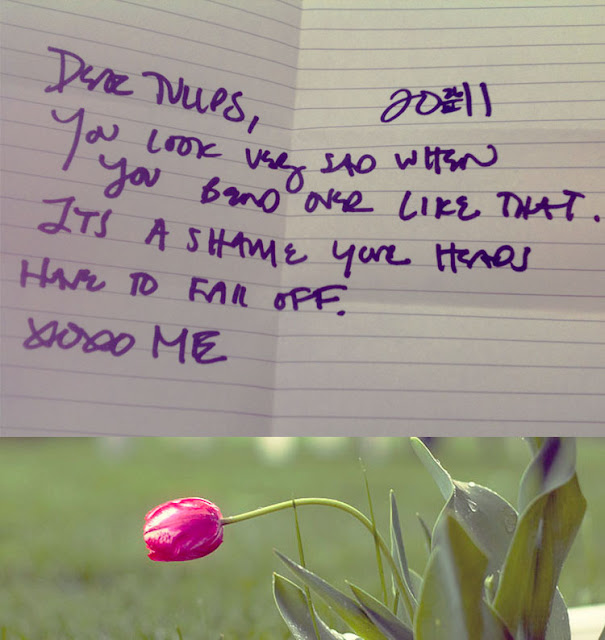 DEAR TULIPS, 2011
YOU LOOK VERY SAD WHEN
YOU BEND OVER LIKE THAT.
ITS A SHAME YOUR HEADS
HAVE TO FALL OFF.
XOXOXO ME